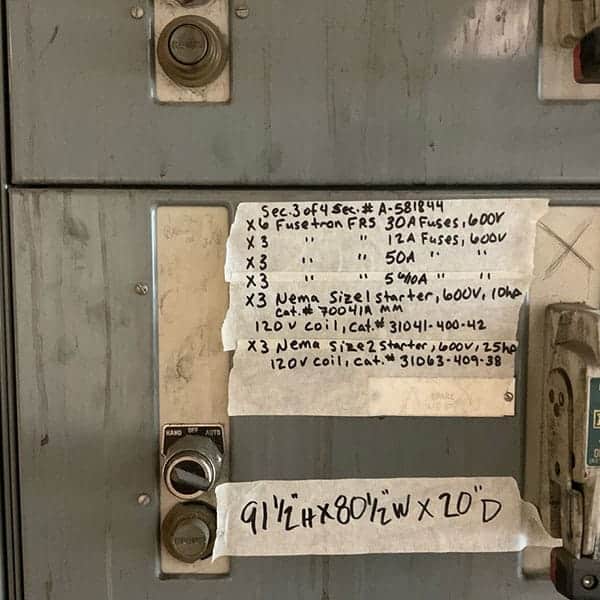 RESET
Sec.3 of 4 Sec.# A-581844
X6 Fusetron FRS 30A Fuses, 600V
X3 " " 12A Fuses, 600V
X3 " " 50A " "
X3 " " 5 6/10A " "
X3 Nema Size1 starter, 600V, 10hp
Cat.# 70041A MM
120V coil, Cat.# 31041-400-42
X3 Nema Size2 starter, 600V, 25hp
120V coil, Cat.# 31063-409-38
SPARE
HAND OFF AUTO
91 1/2"H X 80 1/2"W X 20"D
RESET